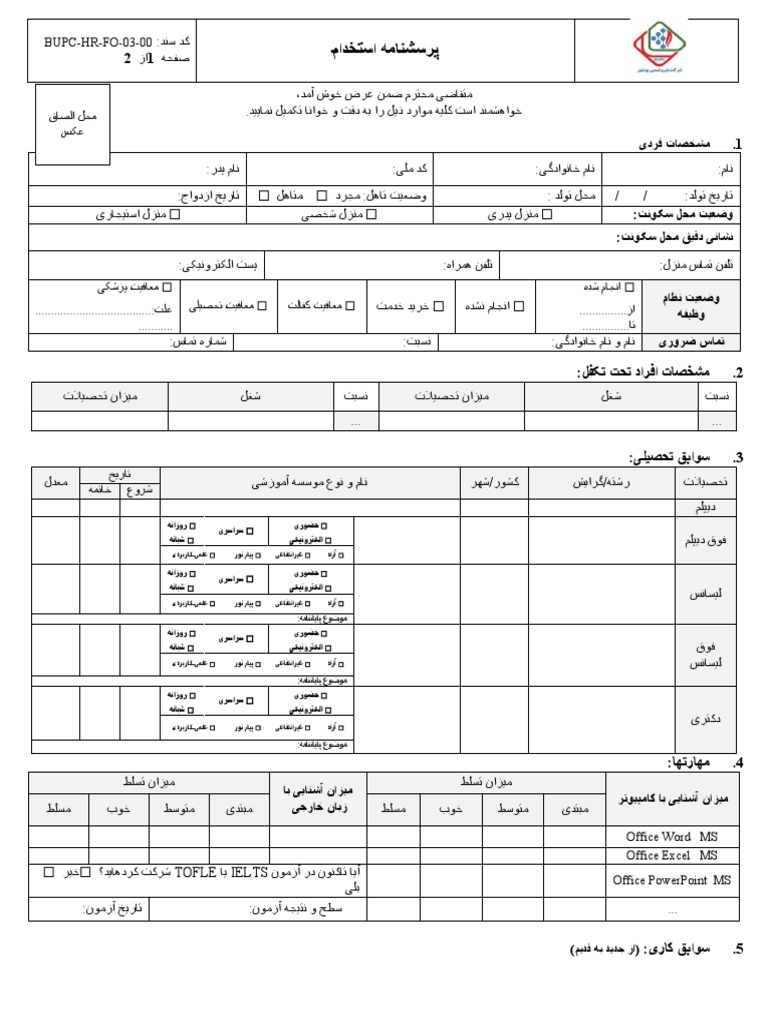 کد سند: BUPC-HR-FO-03-00
صفحه 1 از 2
پرسشنامه استخدام
شرکت پتروشیمی بوشهر
محل الصاق
عکس
متقاضی محترم ضمن عرض خوش آمد،
خواهشمند است کلیه موارد ذیل را به دقت و خوانا تکمیل نمایید.
1. مشخصات فردی
نام: نام خانوادگی: کد ملی: نام پدر :
تاریخ تولد: / / محل تولد : وضعیت تاهل: مجرد □ متاهل □ تاریخ ازدواج:
وضعیت محل سکونت: □ منزل پدری □ منزل شخصی □ منزل استیجاری
نشانی دقیق محل سکونت:
تلفن تماس منزل: تلفن همراه: پست الکترونیکی:
وضعیت نظام
وظیفه
□ انجام شده
از..............
تا...............
□ انجام نشده
□ خرید خدمت
□ معافیت کفالت
□ معافیت تحصیلی
□ معافیت پزشکی
علت:..................................
...........
تماس ضروری نام و نام خانوادگی: نسبت: شماره تماس:
2. مشخصات افراد تحت تکفل:
نسبت شغل میزان تحصیلات نسبت شغل میزان تحصیلات
... ...
3. سوابق تحصیلی:
تحصیلات رشته/گرایش کشور/شهر نام و نوع موسسه آموزشی تاریخ معدل
شروع خاتمه
دیپلم
فوق دیپلم
□ حضوری □ سراسری □ روزانه
□ الکترونیکی □ شبانه
□ آزاد □ غیرانتفاعی □ پیام نور □ علمی‌کاربردی
لیسانس
□ حضوری □ سراسری □ روزانه
□ الکترونیکی □ شبانه
□ آزاد □ غیرانتفاعی □ پیام نور □ علمی‌کاربردی
موضوع پایاننامه:
فوق
لیسانس
□ حضوری □ سراسری □ روزانه
□ الکترونیکی □ شبانه
□ آزاد □ غیرانتفاعی □ پیام نور □ علمی‌کاربردی
موضوع پایاننامه:
دکتری
□ حضوری □ سراسری □ روزانه
□ الکترونیکی □ شبانه
□ آزاد □ غیرانتفاعی □ پیام نور □ علمی‌کاربردی
موضوع پایاننامه:
4. مهارتها:
میزان آشنایی با کامپیوتر میزان تسلط میزان آشنایی با
زبان خارجی میزان تسلط
مبتدی متوسط خوب مسلط مبتدی متوسط خوب مسلط
Office Word MS
Office Excel MS
Office PowerPoint MS
آیا تاکنون در آزمون IELTS یا TOFLE شرکت کردهاید؟ □خیر □
بلی
... سطح و نتیجه آزمون: تاریخ آزمون:
5. سوابق کاری: (از جدید به قدیم)